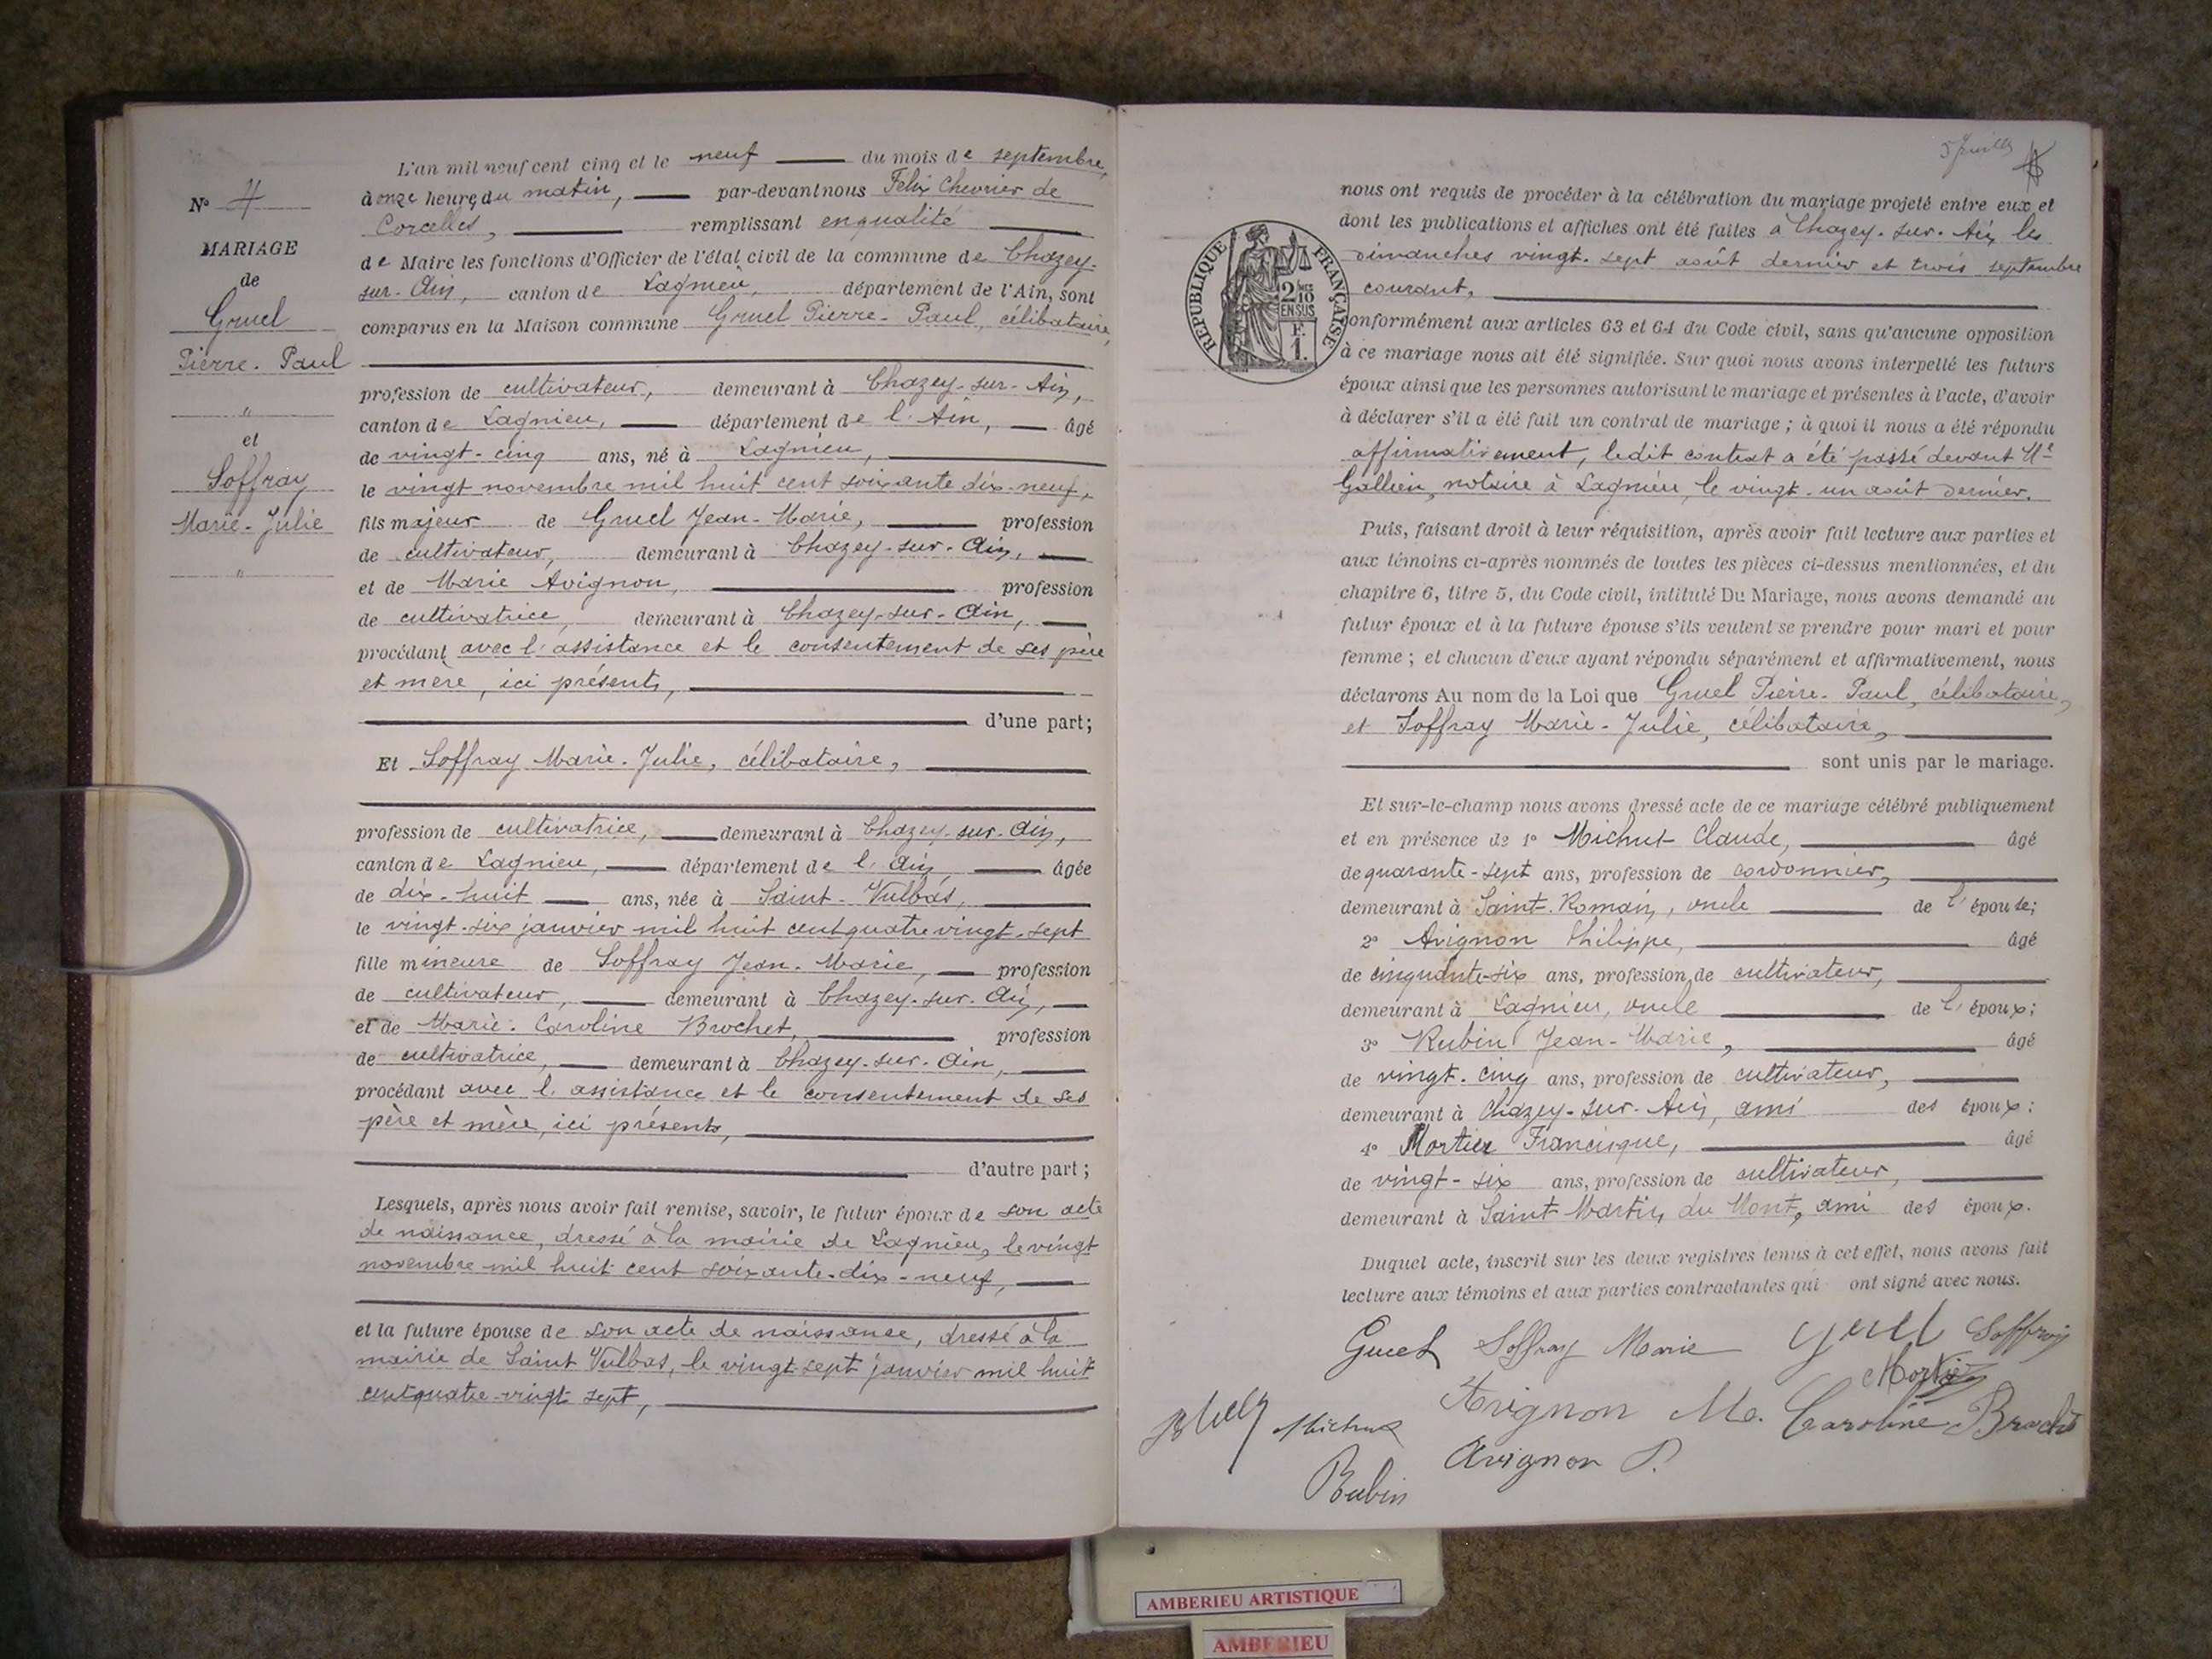 N° 4
MARIAGE
de
Gruel
Pierre-Paul
"
et
Soffray
Marie-Julie
"
L'an mil neuf cent cinq et le neuf du mois de septembre,
à onze heures du matin, par-devant nous Felix Chevrier de
Corcelles, remplissant en qualité
de Maire les fonctions d'Officier de l'état civil de la commune de Chazey-
sur-Ain, canton de Lagnieu, département de l'Ain, sont
comparus en la Maison commune Gruel Pierre-Paul, célibataire,
profession de cultivateur, demeurant à Chazey-sur-Ain,
canton de Lagnieu, département de l'Ain, âgé
de vingt-cinq ans, né à Lagnieu,
le vingt novembre mil huit cent soixante dix-neuf,
fils majeur de Gruel Jean-Marie, profession
de cultivateur, demeurant à Chazey-sur-Ain,
et de Marie Avignon, profession
de cultivatrice, demeurant à Chazey-sur-Ain,
procédant avec l'assistance et le consentement de ses père
et mère, ici présents,
d'une part;
Et Soffray Marie-Julie, célibataire,
profession de cultivatrice, demeurant à Chazey-sur-Ain,
canton de Lagnieu, département de l'Ain, âgée
de dix-huit ans, née à Saint-Vulbas,
le vingt-six janvier mil huit cent quatre vingt-sept
fille mineure de Soffray Jean-Marie, profession
de cultivateur, demeurant à Chazey-sur-Ain,
et de Marie-Caroline Brochet, profession
de cultivatrice, demeurant à Chazey-sur-Ain,
procédant avec l'assistance et le consentement de ses
père et mère, ici présents,
d'autre part;
Lesquels, après nous avoir fait remise, savoir, le futur époux de son acte
de naissance, dressé à la mairie de Lagnieu, le vingt
novembre mil huit cent soixante-dix-neuf,
et la future épouse de son acte de naissance, dressé à la
mairie de Saint Vulbas, le vingt-sept janvier mil huit
cent quatre-vingt sept,
nous ont requis de procéder à la célébration du mariage projeté entre eux et
dont les publications et affiches ont été faites à Chazey-sur-Ain les
dimanches vingt-sept août dernier et trois septembre
courant,
RÉPUBLIQUE FRANÇAISE
2/10 EN SUS
F.
1.
conformément aux articles 63 et 64 du Code civil, sans qu'aucune opposition
à ce mariage nous ait été signifiée. Sur quoi nous avons interpellé les futurs
époux ainsi que les personnes autorisant le mariage et présentes à l'acte, d'avoir
à déclarer s'il a été fait un contrat de mariage; à quoi il nous a été répondu
affirmativement, ledit contrat a été passé devant Me
Gallien, notaire à Lagnieu, le vingt-un août dernier.
Puis, faisant droit à leur réquisition, après avoir fait lecture aux parties et
aux témoins ci-après nommés de toutes les pièces ci-dessus mentionnées, et du
chapitre 6, titre 5, du Code civil, intitulé Du Mariage, nous avons demandé au
futur époux et à la future épouse s'ils veulent se prendre pour mari et pour
femme; et chacun d'eux ayant répondu séparément et affirmativement, nous
déclarons Au nom de la Loi que Gruel Pierre-Paul, célibataire,
et Soffray Marie-Julie, célibataire,
sont unis par le mariage.
Et sur-le-champ nous avons dressé acte de ce mariage célébré publiquement
et en présence de 1° Michut Claude, âgé
de quarante-sept ans, profession de cordonnier,
demeurant à Saint-Romain, oncle de l'épouse;
2° Avignon Philippe, âgé
de cinquante-six ans, profession de cultivateur,
demeurant à Lagnieu, oncle de l'époux;
3° Rubin Jean-Marie, âgé
de vingt-cinq ans, profession de cultivateur,
demeurant à Chazey-sur-Ain, ami des époux;
4° Mortier Francisque, âgé
de vingt-six ans, profession de cultivateur,
demeurant à Saint-Martin du Mont, ami des époux.
Duquel acte, inscrit sur les deux registres tenus à cet effet, nous avons fait
lecture aux témoins et aux parties contractantes qui ont signé avec nous.
Gruel Soffray Marie Gruel Soffray
Mortier
Avignon Ma. Caroline Brochet
Michut
Avignon P.
Rubin
AMBERIEU ARTISTIQUE
AMBERIEU